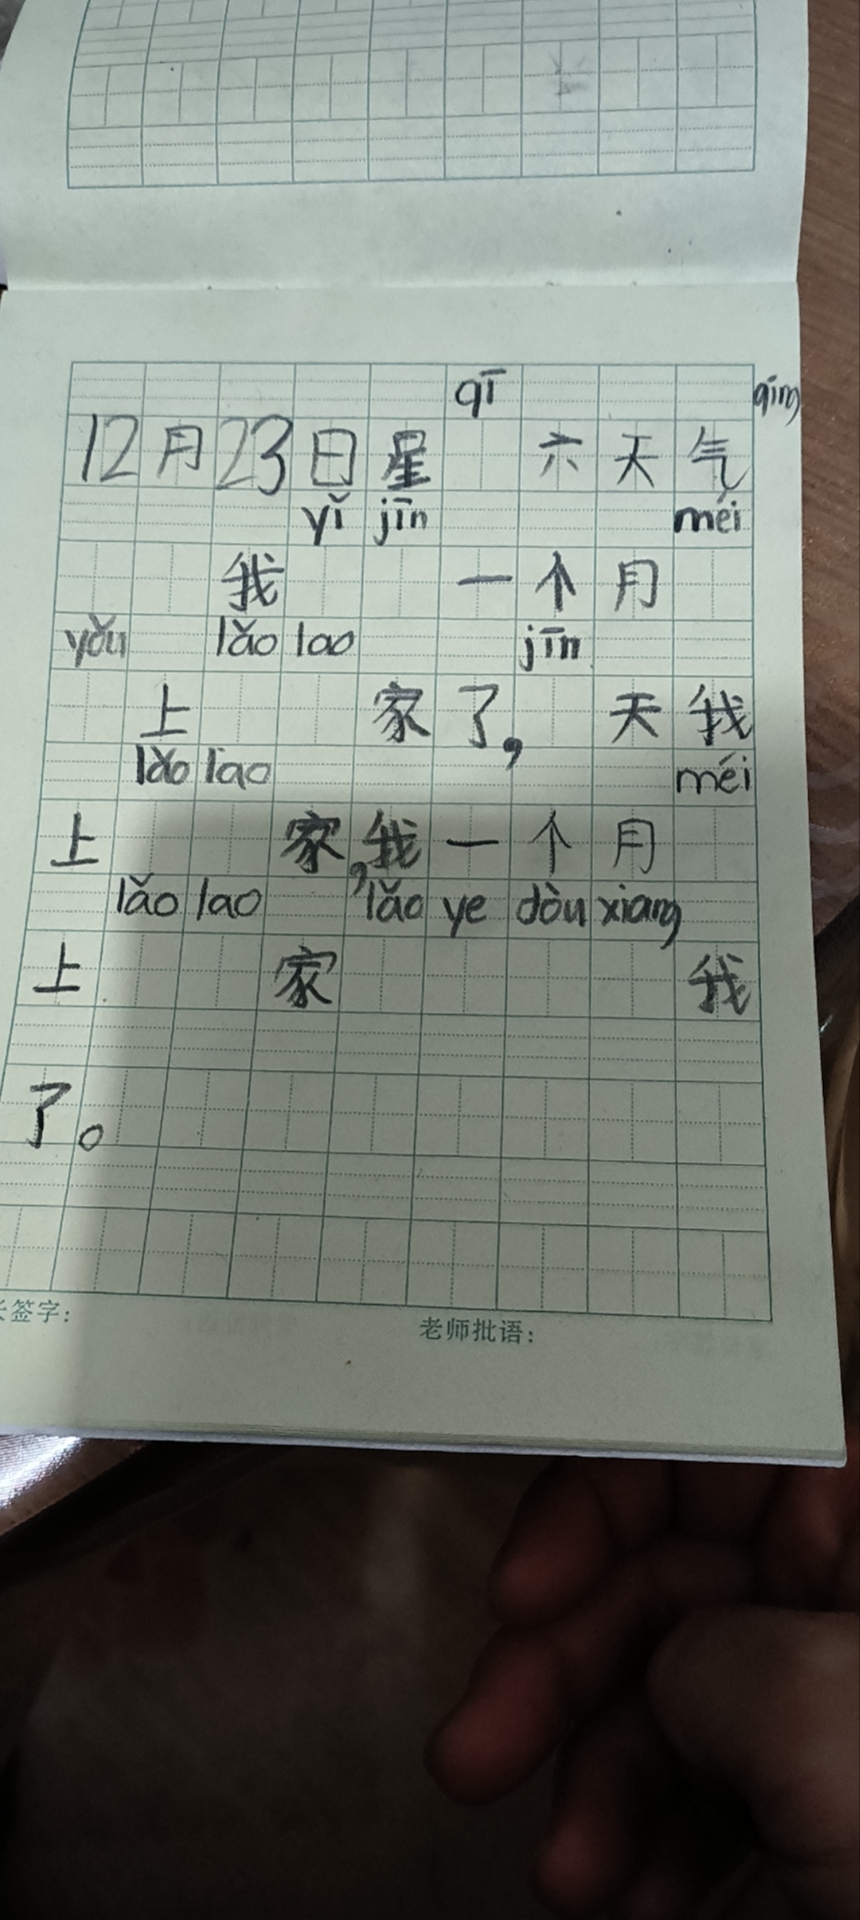 qī qíng
12月23日星 六天气
yǐ jīn méi
我 一个月
yǒu lǎo lao jīn
上 家了, 天我
lǎo lao méi
上 家,我一个月
lǎo lao lǎo ye dòu xiang
上 家 我
了。
长签字:
老师批语: